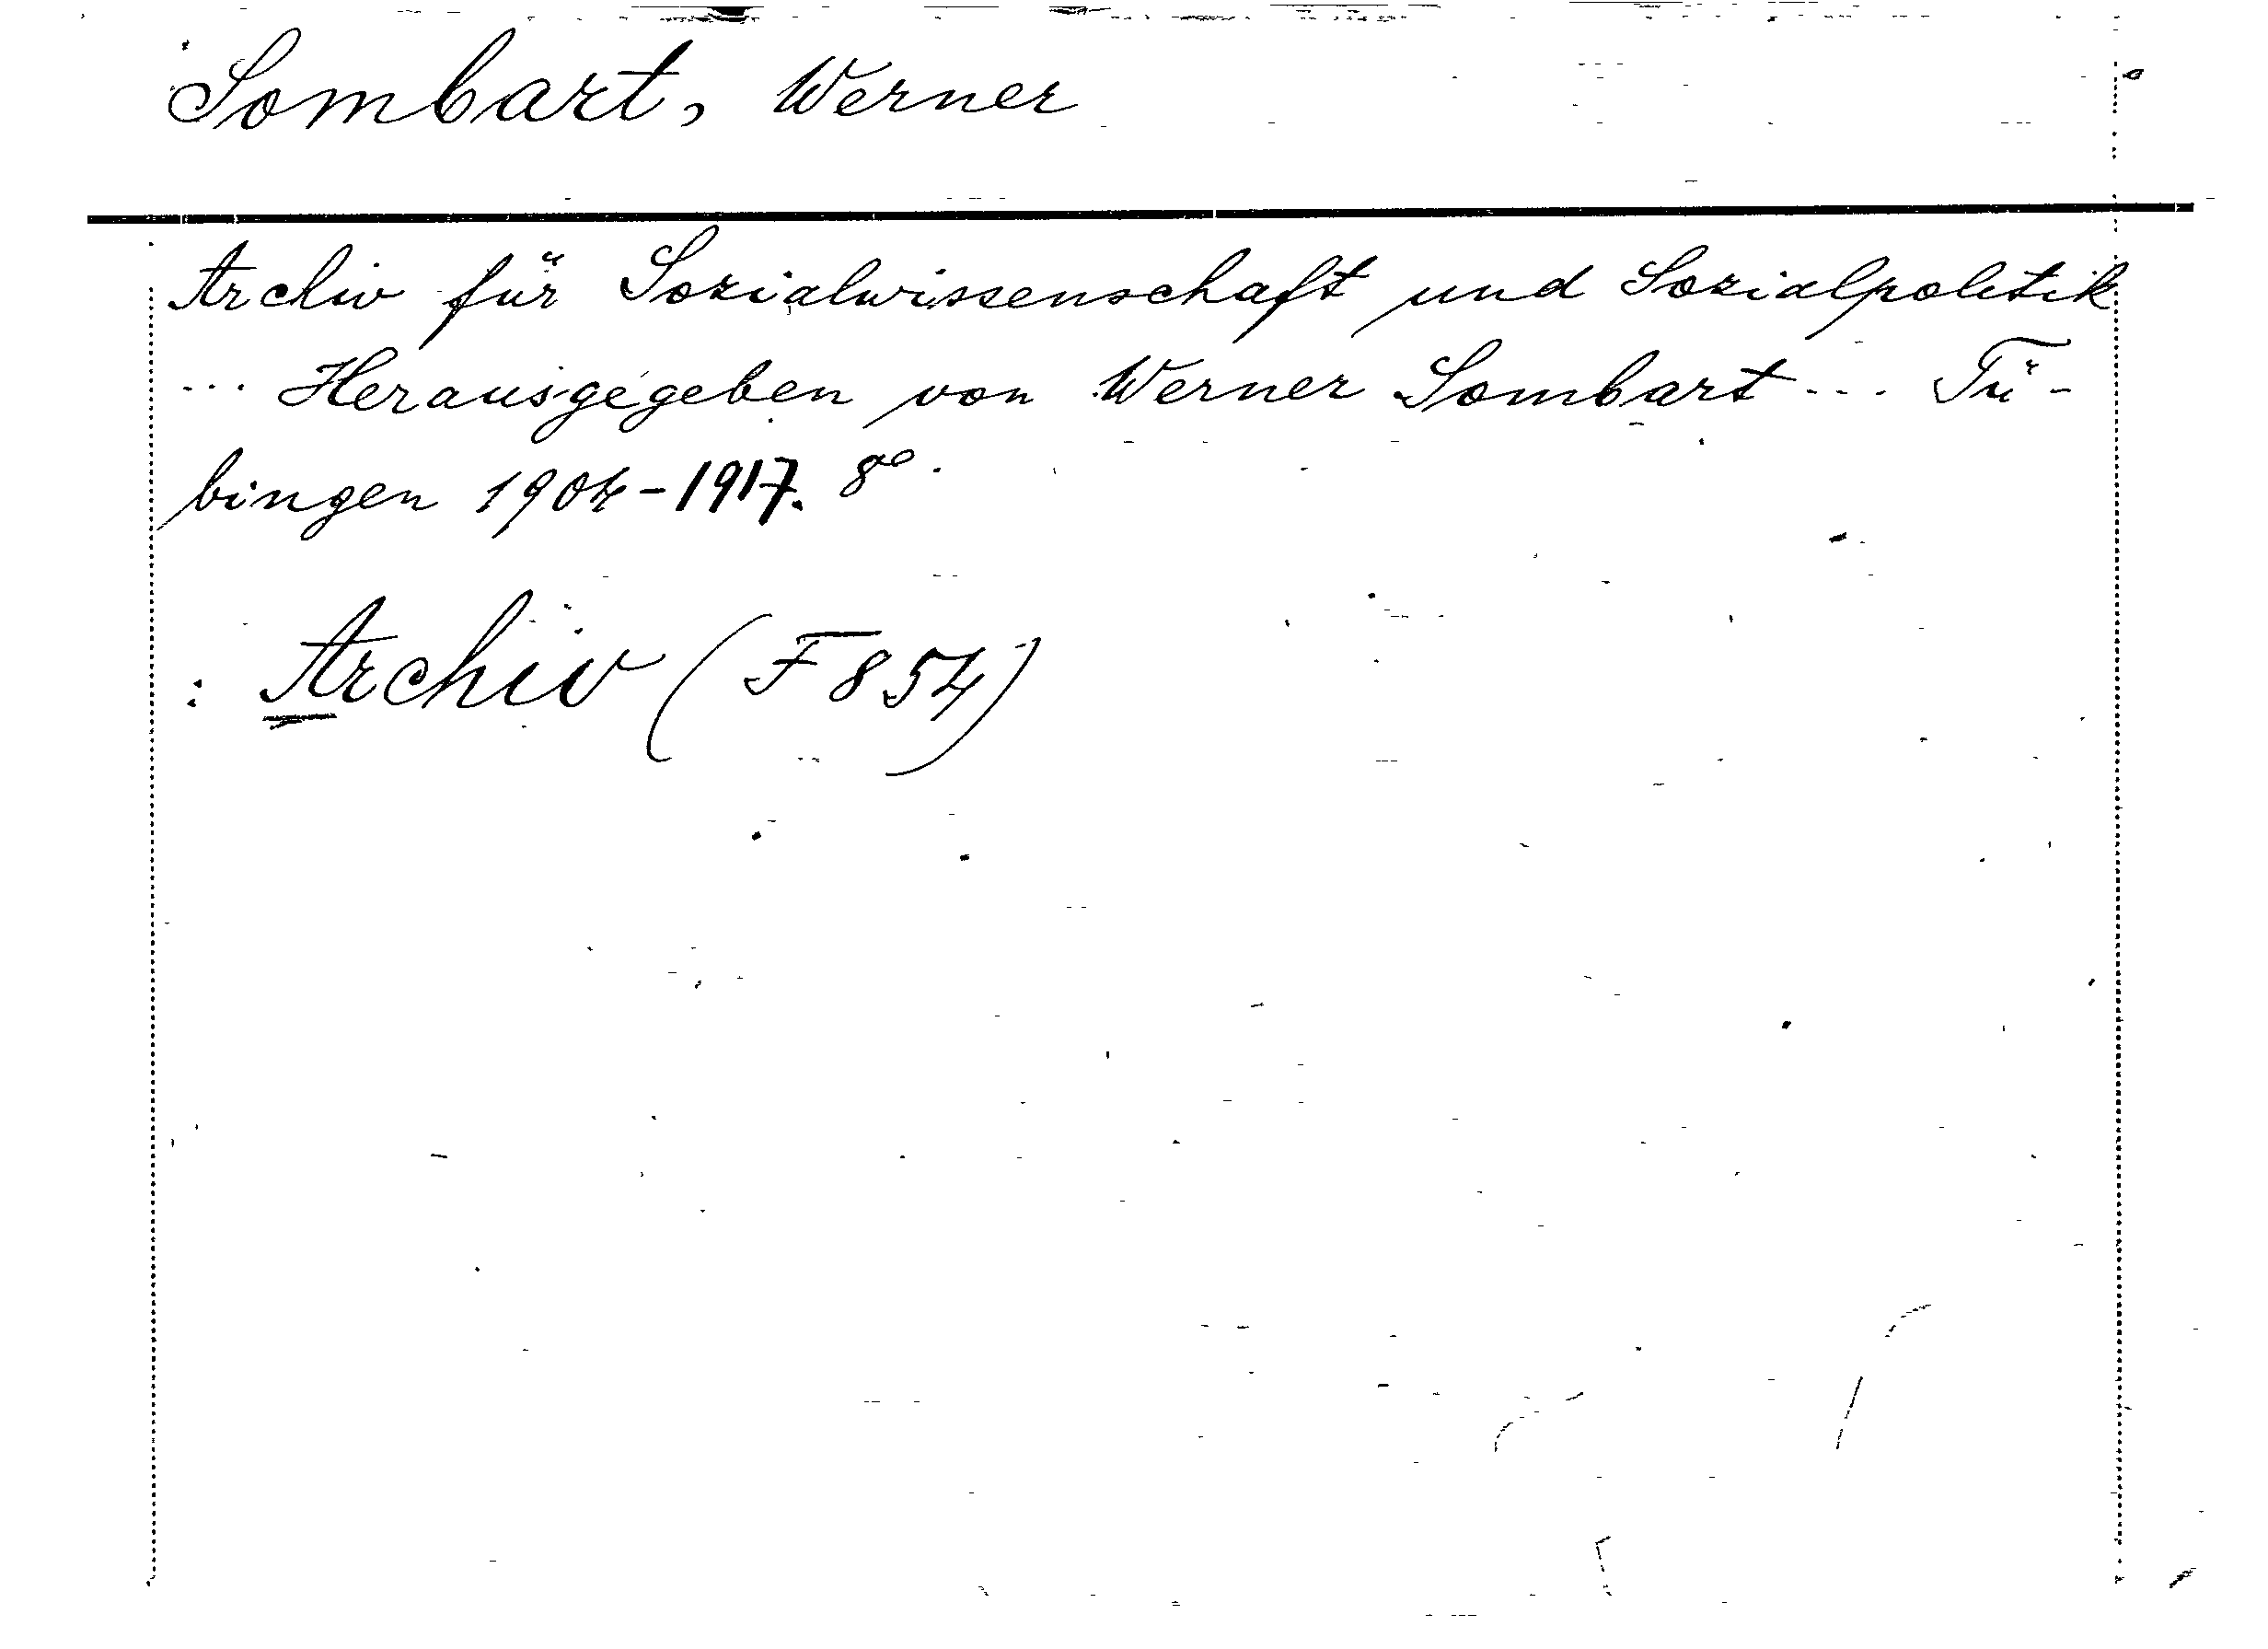 Sombart, Werner
Archiv für Sozialwissenschaft und Sozialpolitik
... Herausgegeben von Werner Sombart ... Tü-
bingen 1904-1917. 8°.
: Archiv (F 854)